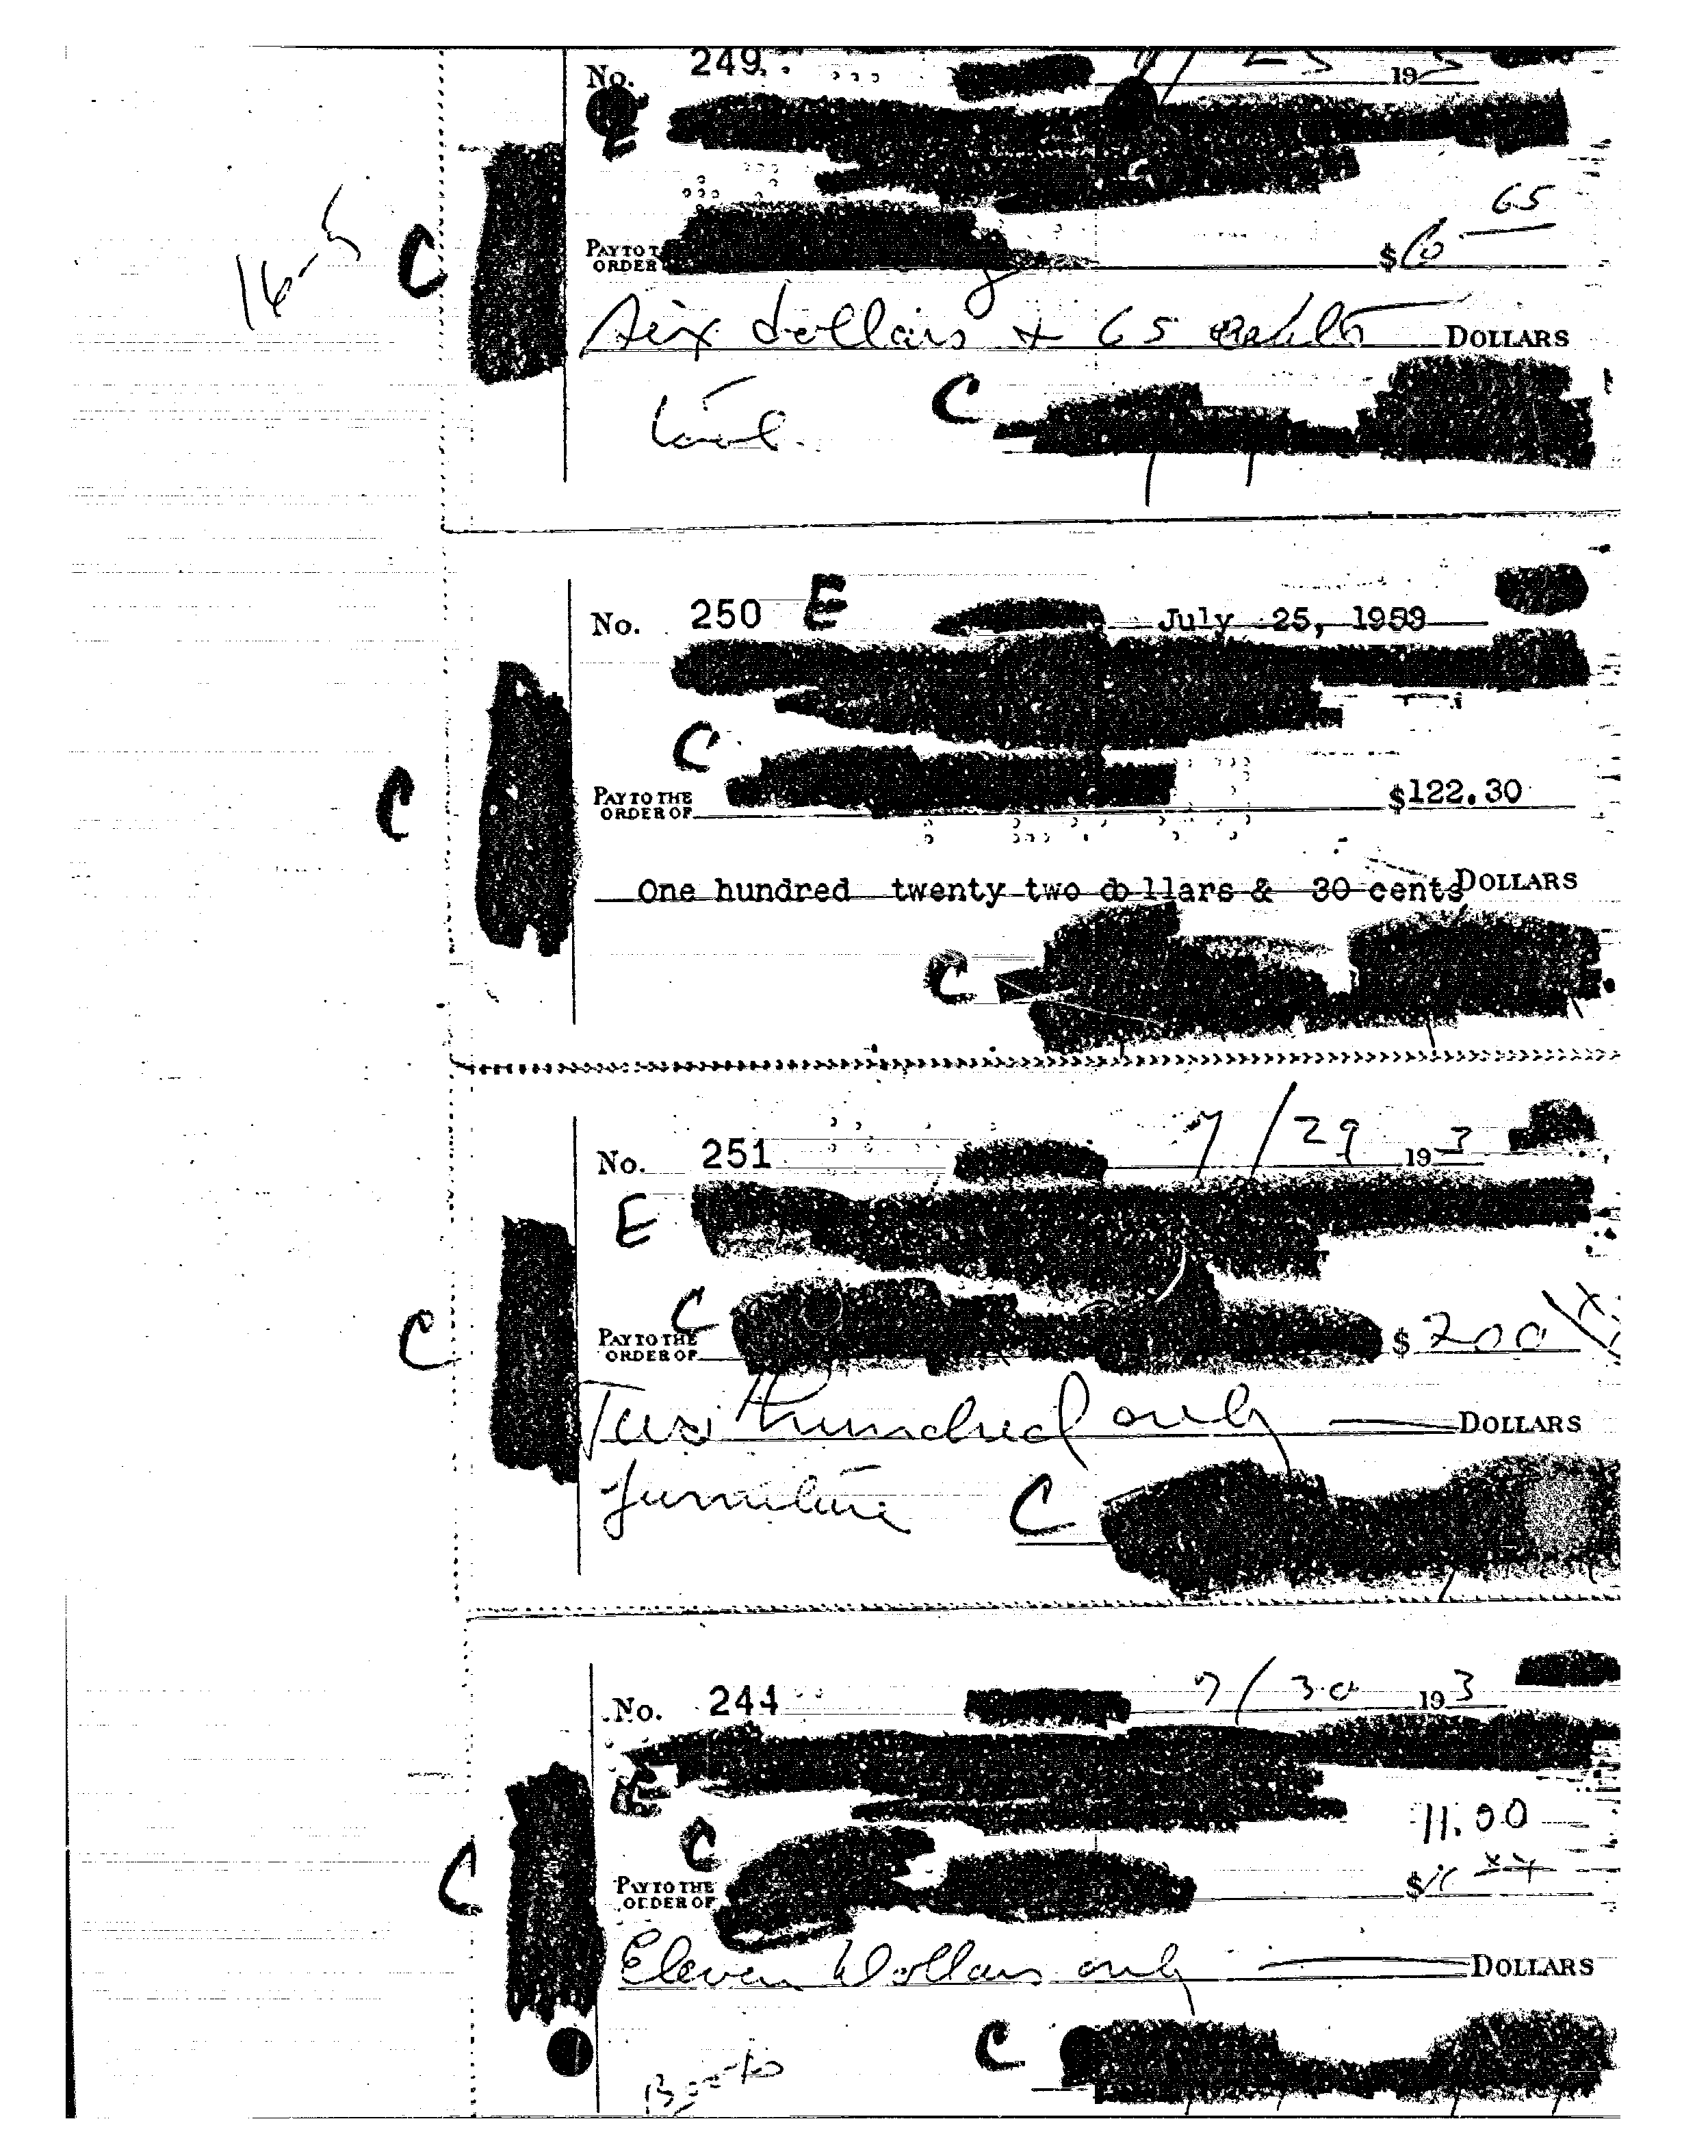 No. 249 19
E
65
16-5 C PAY TO T
ORDER $6
Six dollars + 65 DOLLARS
C
No. 250 E July 25, 1953
C
C PAY TO THE
ORDER OF $122.30
One hundred twenty two dollars & 30 cents DOLLARS
C
No. 251 7/29 19 3
E
C
C PAY TO THE
ORDER OF $ 200
Two hundred only DOLLARS
furniture C
No. 244 7/30 19 3
E
11.00
C
C PAY TO THE
ORDER OF $
Eleven Dollars only DOLLARS
C
Books